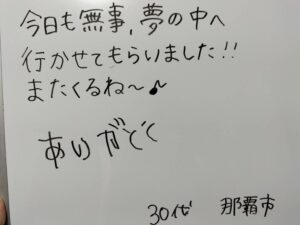 今日も無事,夢の中へ
行かせてもらいました!!
またくるね〜♪
ありがとう
30代 那覇市